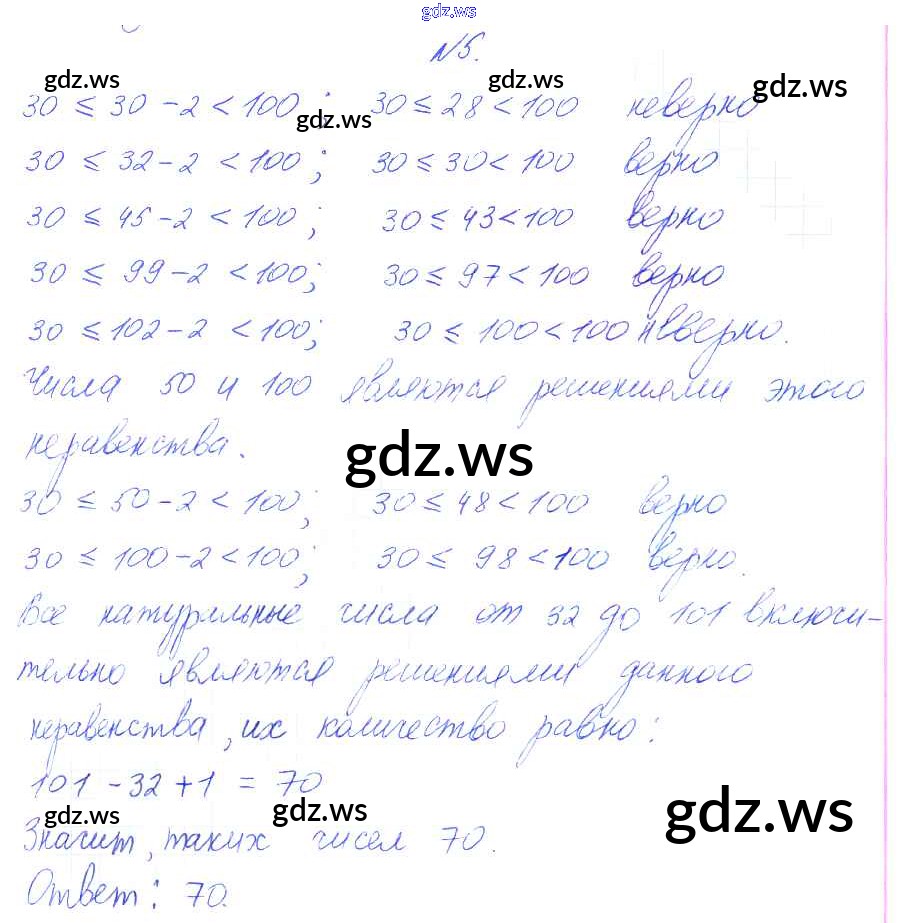 gdz.ws
№5.
gdz.ws gdz.ws gdz.ws
30 ≤ 30 - 2 < 100; 30 ≤ 28 < 100 неверно
gdz.ws
30 ≤ 32 - 2 < 100; 30 ≤ 30 < 100 верно
30 ≤ 45 - 2 < 100; 30 ≤ 43 < 100 верно
30 ≤ 99 - 2 < 100; 30 ≤ 97 < 100 верно
30 ≤ 102 - 2 < 100; 30 ≤ 100 < 100 неверно.
Числа 50 и 100 являются решениями этого
неравенства.
gdz.ws
30 ≤ 50 - 2 < 100; 30 ≤ 48 < 100 верно
30 ≤ 100 - 2 < 100; 30 ≤ 98 < 100 верно.
Все натуральные числа от 32 до 101 включи-
тельно являются решениями данного
неравенства, их количество равно:
101 - 32 + 1 = 70
gdz.ws gdz.ws gdz.ws
Значит, таких чисел 70.
Ответ: 70.